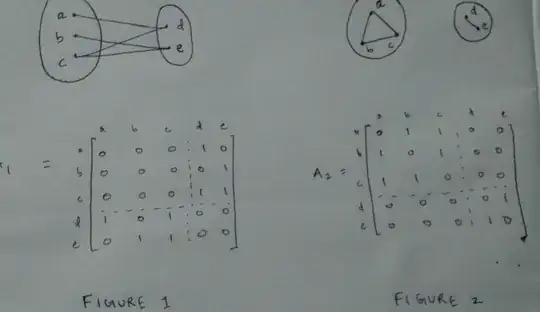 a d
b e
c
a
b c
d
e
a b c d e
a 0 0 0 1 0
b 0 0 0 0 1
1 =
c 0 0 0 1 1
d 1 0 1 0 0
e 0 1 1 0 0
a b c d e
a 0 1 1 0 0
b 1 0 1 0 0
A2 =
c 1 1 0 0 0
d 0 0 0 0 1
e 0 0 0 1 0
FIGURE 1
FIGURE 2